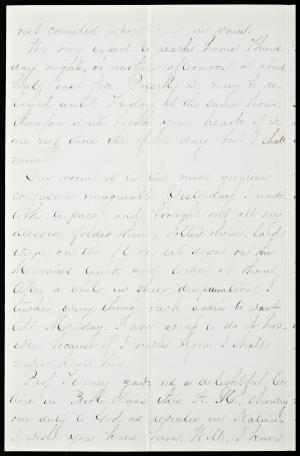 not counted upon you in vain.
We now expect to reach home Thurs-
day night, or rather afternoon, at about
half past five. Possibly we may be de-
layed until Friday, at the same hour.
therefore do not break your hearts if we
are not there the first day, but I shall
mine.
Our room is in the most gorgeous
confusion imaginable. Yesterday I under-
took to pack, and brought out all my
dresses, folded them, rolled them, laid
them on the floor, sat down on the
trunk and looked at them.
After a while, in sheer desperation, I
tucked every thing back again to wait
till Monday. I am going to do it how-
ever, because if I never begin I shall
never know how.
Prof. Tenney gave us a delightful lec-
ture in Bible class this P. M. showing
our duty to God, as revealed in Nature.
I wish you knew him, Will, I know